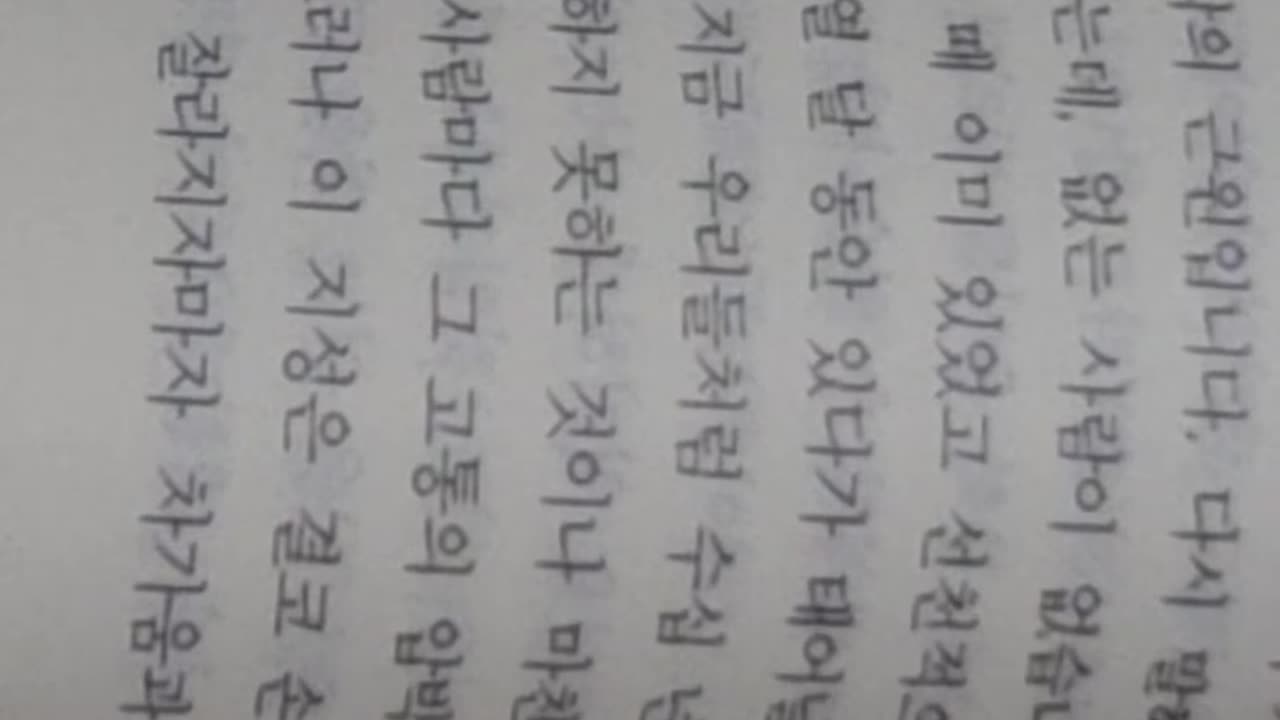 근원입니다. 다시 말
는데, 없는 사람이 없습니
때 이미 있었고 선천적
열 달 동안 있다가 태어날
지금 우리들처럼 수십 년
하지 못하는 것이나 마찬
사람마다 그 고통의 압박
러나 이 지성은 결코 손
잘라지자마자 차가움과